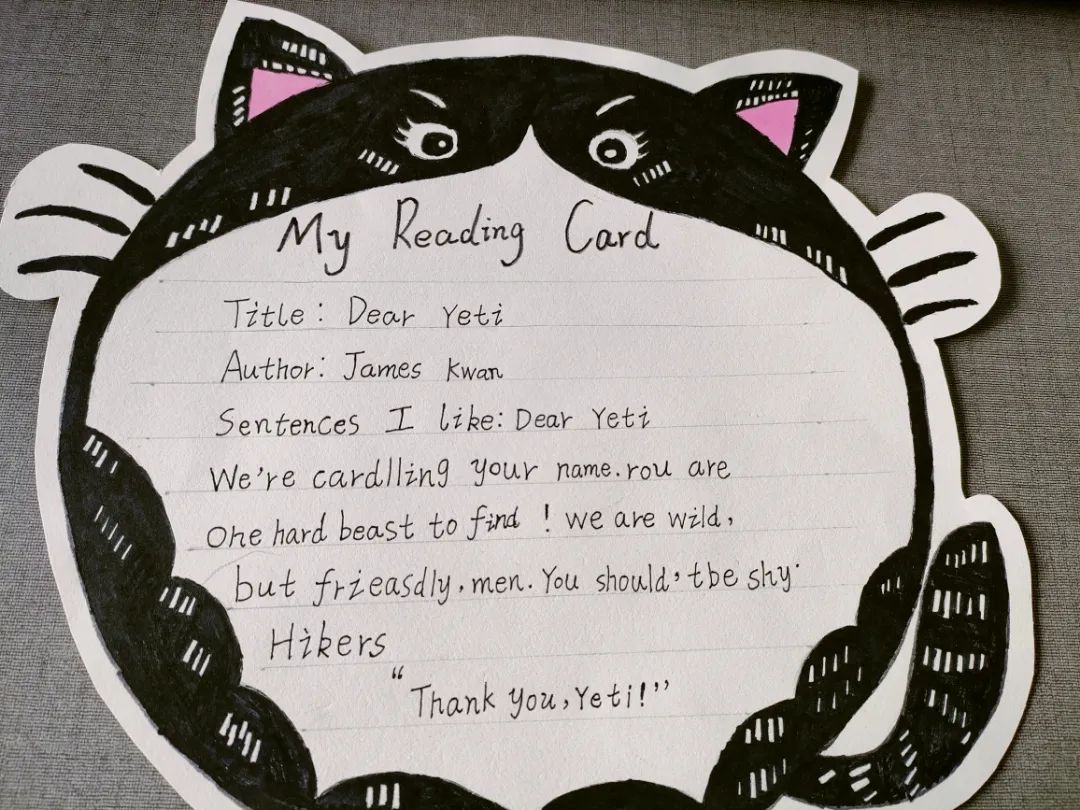 My Reading Card
Title: Dear Yeti
Author: James Kwan
Sentences I like: Dear Yeti
We're cardlling your name. rou are
one hard beast to find! we are wild,
but frieasdly, men. You should,tbe shy.
Hikers
"Thank you, Yeti!"